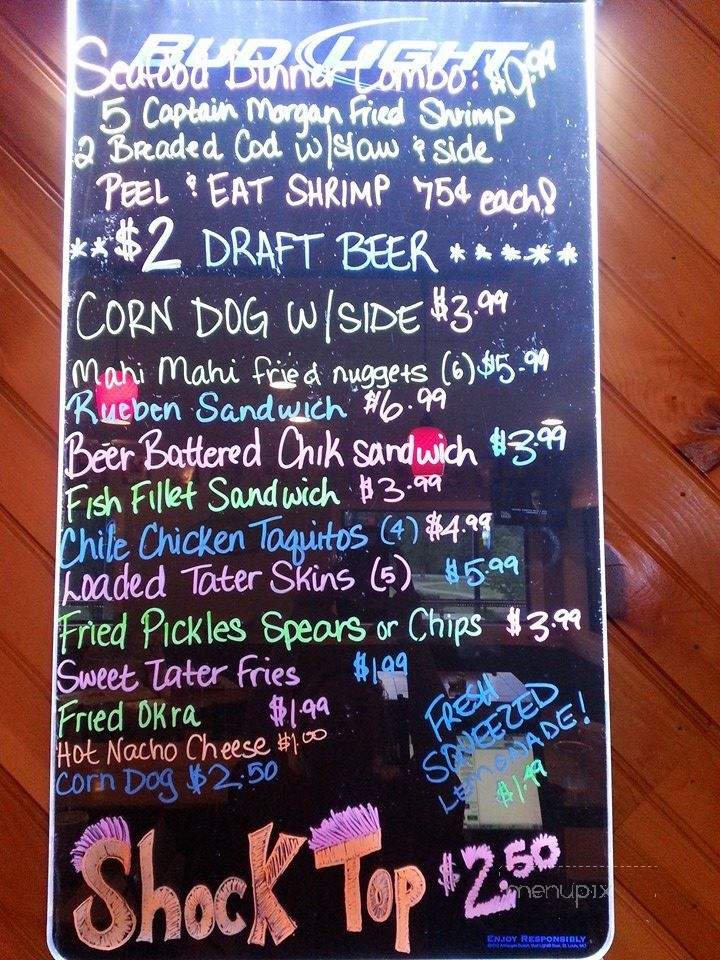 BUD LIGHT
Seafood Dinner Combo:
5 Captain Morgan Fried Shrimp
2 Breaded Cod w/slaw & side
PEEL & EAT SHRIMP 75¢ each!
**$2 DRAFT BEER *****
CORN DOG W/SIDE $3.99
Mahi Mahi fried nuggets (6) $5.99
Rueben Sandwich $6.99
Beer Battered Chik sandwich $3.99
Fish Fillet Sandwich $3.99
Chile Chicken Taquitos (4) $4.99
Loaded Tater Skins (5) $5.99
Fried Pickles Spears or Chips $3.99
Sweet Tater Fries $1.99
Fried Okra $1.99
Hot Nacho Cheese $1.00
Corn Dog $2.50
FRESH
SQUEEZED
LEMONADE!
$1.49
Shock Top $2.50
menupix
ENJOY RESPONSIBLY